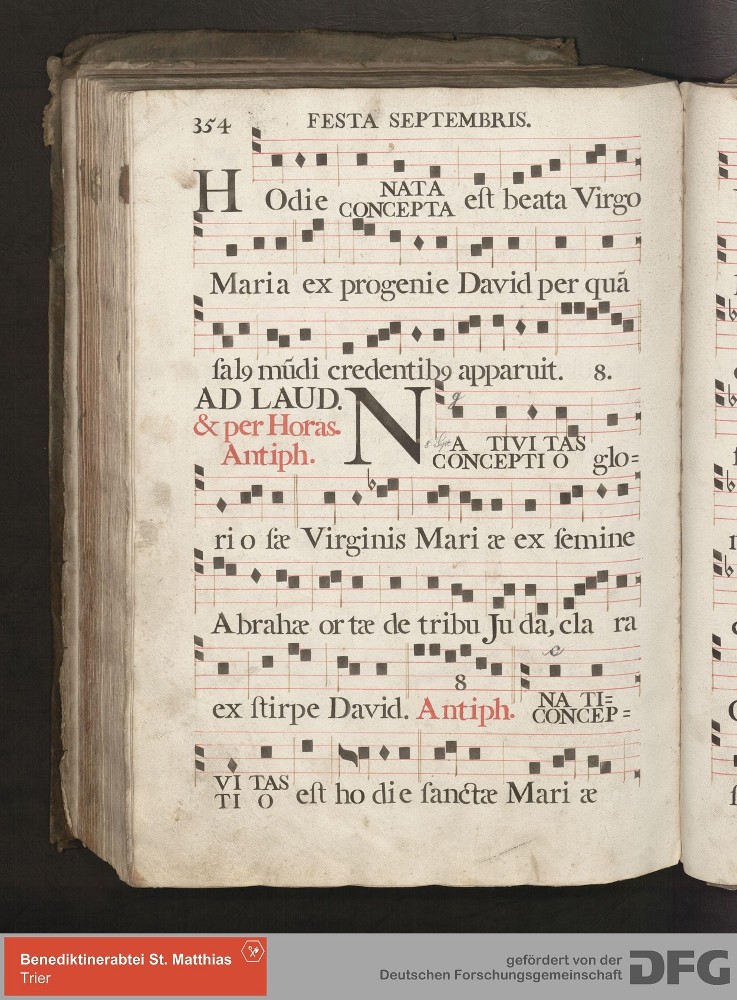 354 FESTA SEPTEMBRIS.
HOdie NATA CONCEPTA eſt beata Virgo
Maria ex progenie David per quã
ſalꝯ mũdi credentibꝯ apparuit. 8.
AD LAUD.
& per Horas.
Antiph.
NA TIVI TAS
CONCEPTI O glo=
ri o ſæ Virginis Mari æ ex ſemine
Abrahæ or tæ de tribu Ju da, cla ra
ex ſtirpe David. Antiph. 8 NA TI=
CONCEP=
VI TAS
TI O eſt ho di e ſanctæ Mari æ
Benediktinerabtei St. Matthias
Trier
gefördert von der
Deutschen Forschungsgemeinschaft DFG